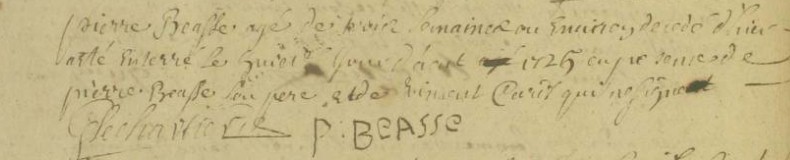 pierre Beasse agé de trois semaines ou Environ decedé d'hier
a esté Enterré le huict jour d'aout 1725 en presence de
pierre Beasse son pere et de vincent qui ne signent
P: BEASSE